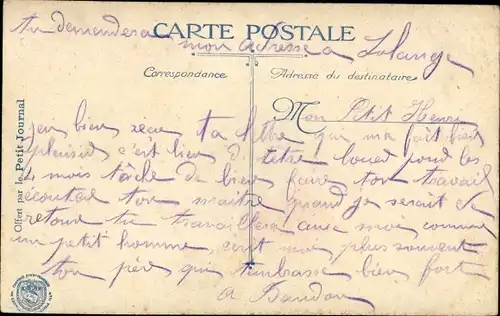 tu demandera
CARTE POSTALE
mon adresse a Solange
Correspondance
Adresse du destinataire
Mon Petit Henri
jai bien recu ta lettre qui ma fait bien
plaisir c'est bien d titre loué pour les
4 mois tâche de bien faire ton travail
écouter ton maitre quand je serait de
retour tu travaillera avec moi comme
un petit homme, écrit moi plus souvent
ton père que t'embrasse bien fort
Offert par le Petit Journal